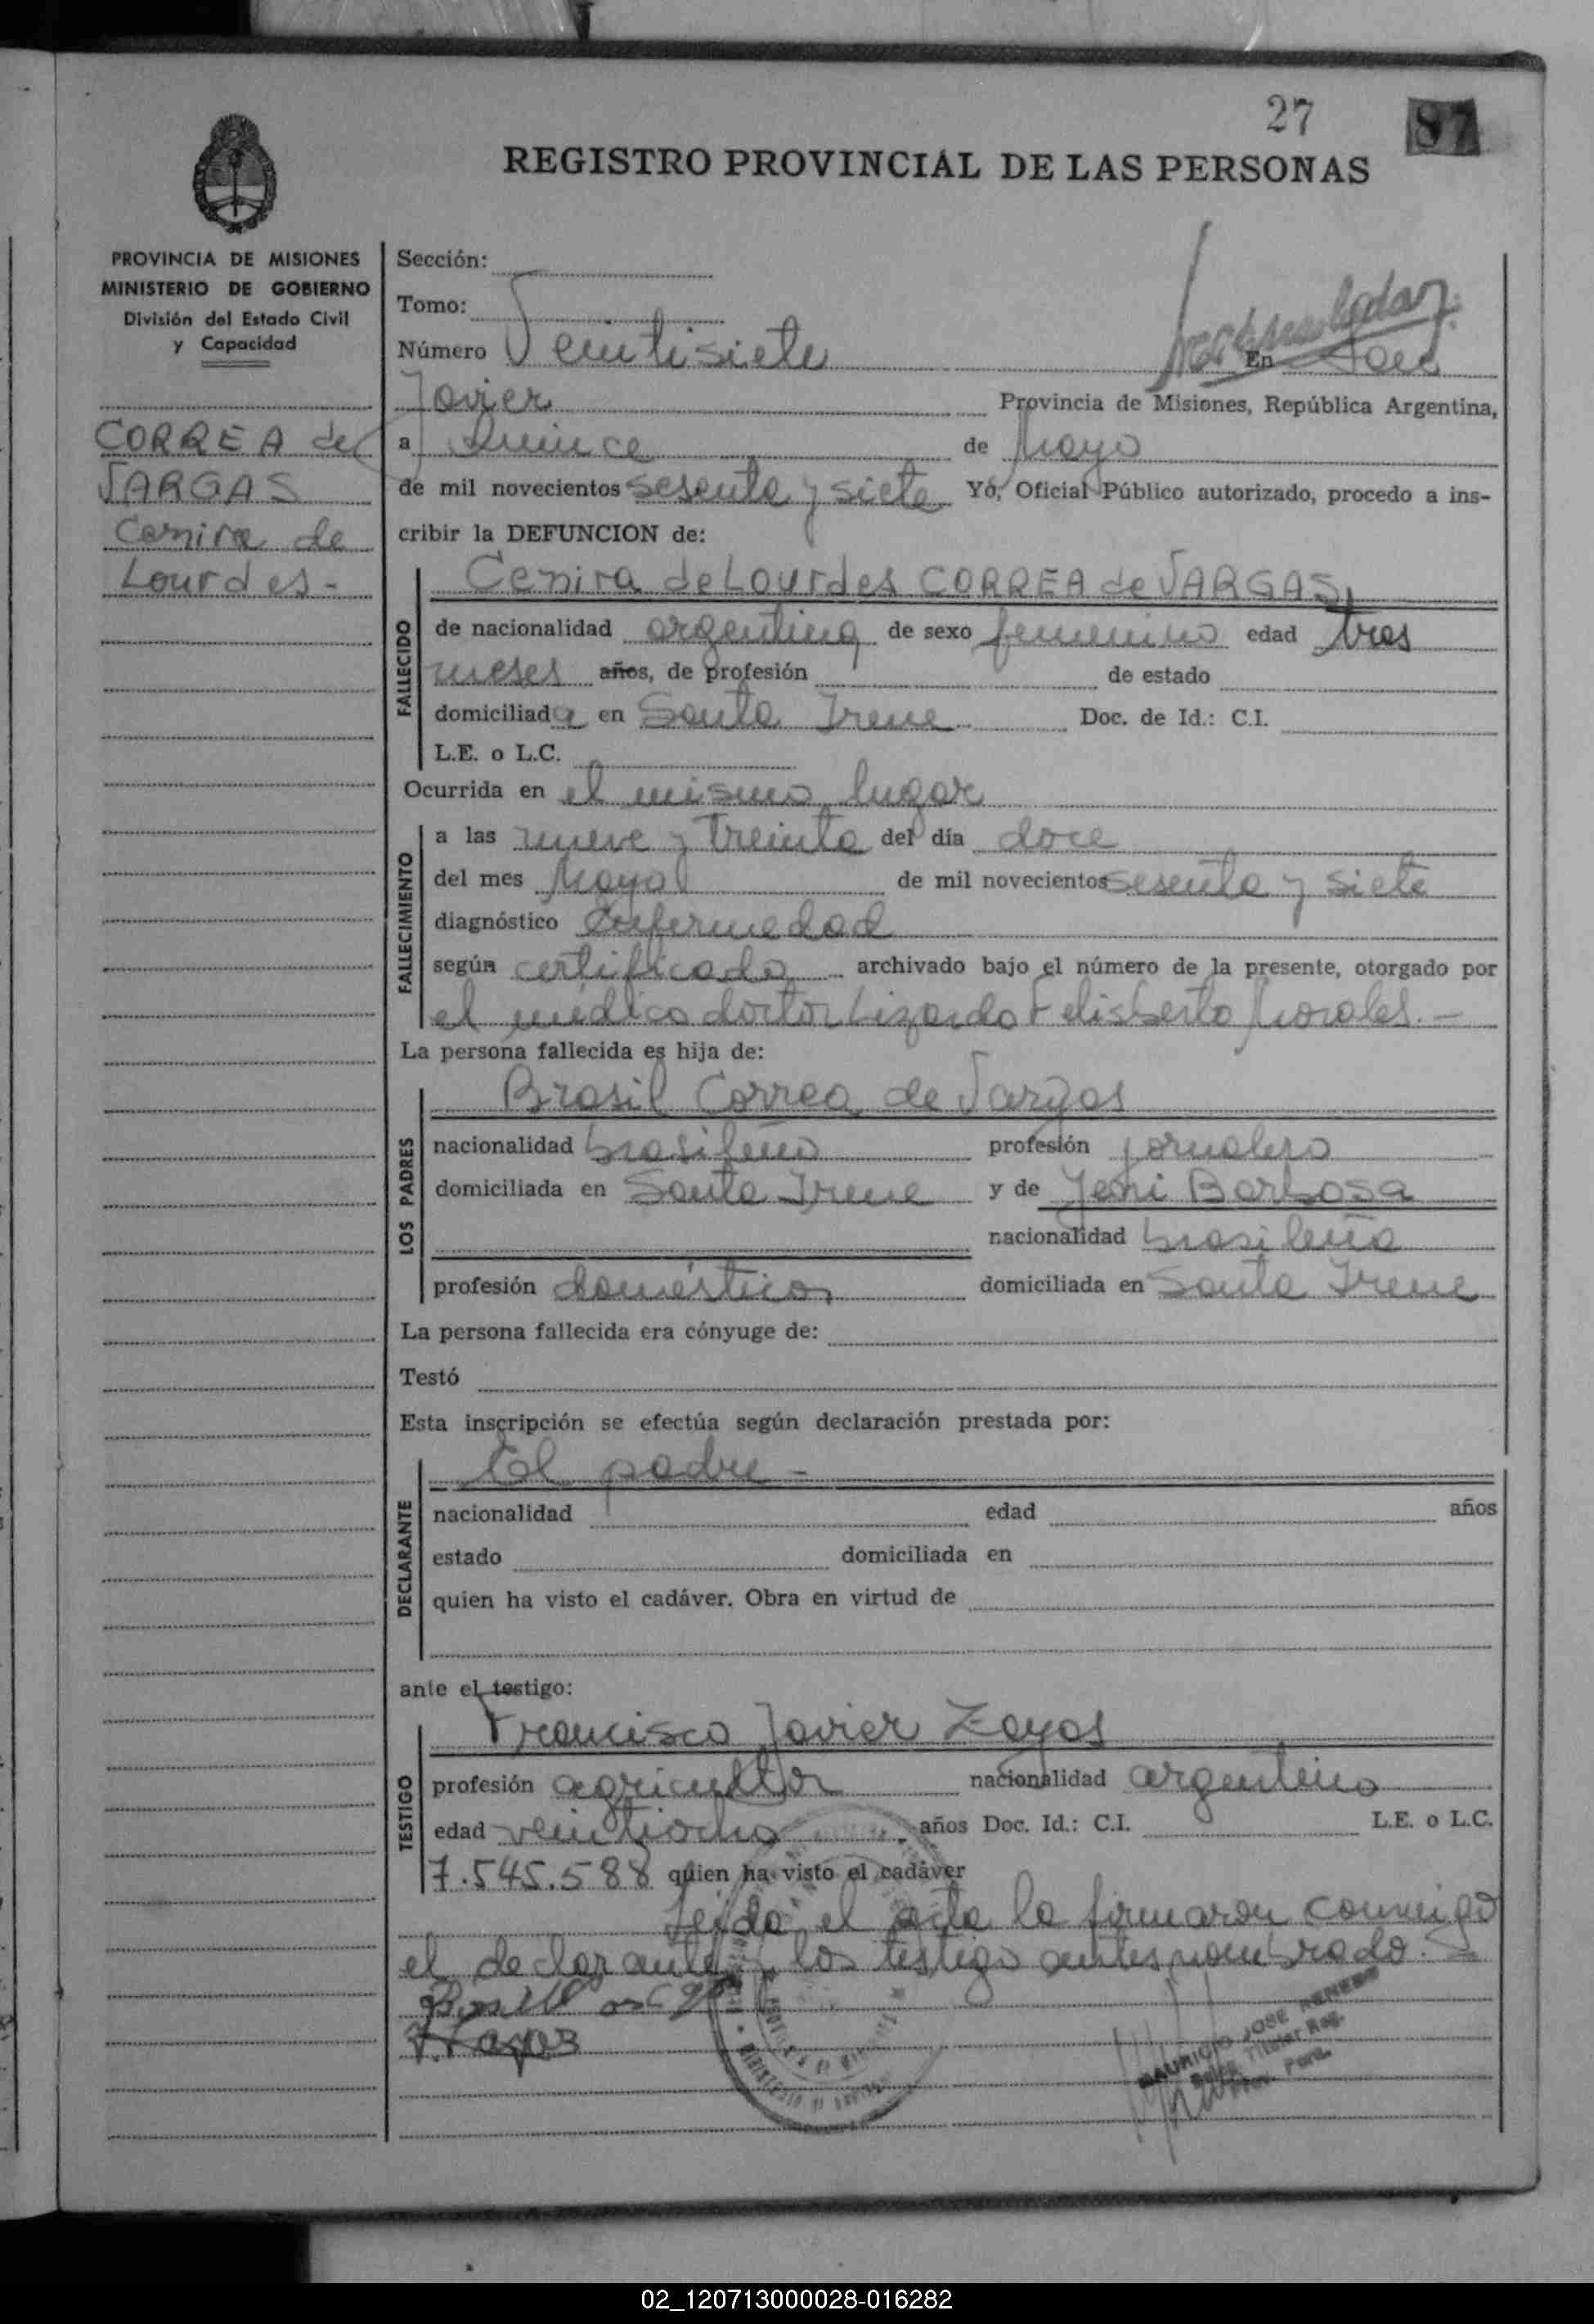 27 87
REGISTRO PROVINCIAL DE LAS PERSONAS
PROVINCIA DE MISIONES
MINISTERIO DE GOBIERNO
División del Estado Civil
y Capacidad
CORREA de
VARGAS
Cenira de
Lourdes-
Sección:
Tomo:
Número Veintisiete En San
Javier Provincia de Misiones, República Argentina,
a quince de Mayo
de mil novecientos sesenta y siete Yo, Oficial Público autorizado, procedo a ins-
cribir la DEFUNCION de:
Cenira de Lourdes CORREA de VARGAS,
FALLECIDO
de nacionalidad argentina de sexo femenino edad tres
meses años, de profesión de estado
domiciliada en Santa Irene Doc. de Id.: C.I.
L.E. o L.C.
Ocurrida en el mismo lugar
FALLECIMIENTO
a las nueve y treinta del día doce
del mes Mayo de mil novecientos sesenta y siete
diagnóstico Enfermedad
según certificado archivado bajo el número de la presente, otorgado por
el médico doctor Lizardo Felisberto Morales.-
La persona fallecida es hija de:
LOS PADRES
Brasil Correa de Vargas
nacionalidad brasileño profesión jornalero
domiciliada en Santa Irene y de Jeni Barbosa
nacionalidad brasileña
profesión doméstica domiciliada en Santa Irene
La persona fallecida era cónyuge de:
Testó
Esta inscripción se efectúa según declaración prestada por:
DECLARANTE
El padre -
nacionalidad edad años
estado domiciliada en
quien ha visto el cadáver. Obra en virtud de
ante el testigo:
TESTIGO
Francisco Javier Zayas
profesión agricultor nacionalidad argentino
edad veintiocho años Doc. Id.: C.I. L.E. o L.C.
7.545.588 quien ha visto el cadáver
Leída el acta la firmaron conmigo
el declarante y los testigo antes nombrado.-
F. Zayas
MAURICIO JOSE
02_120713000028-016282